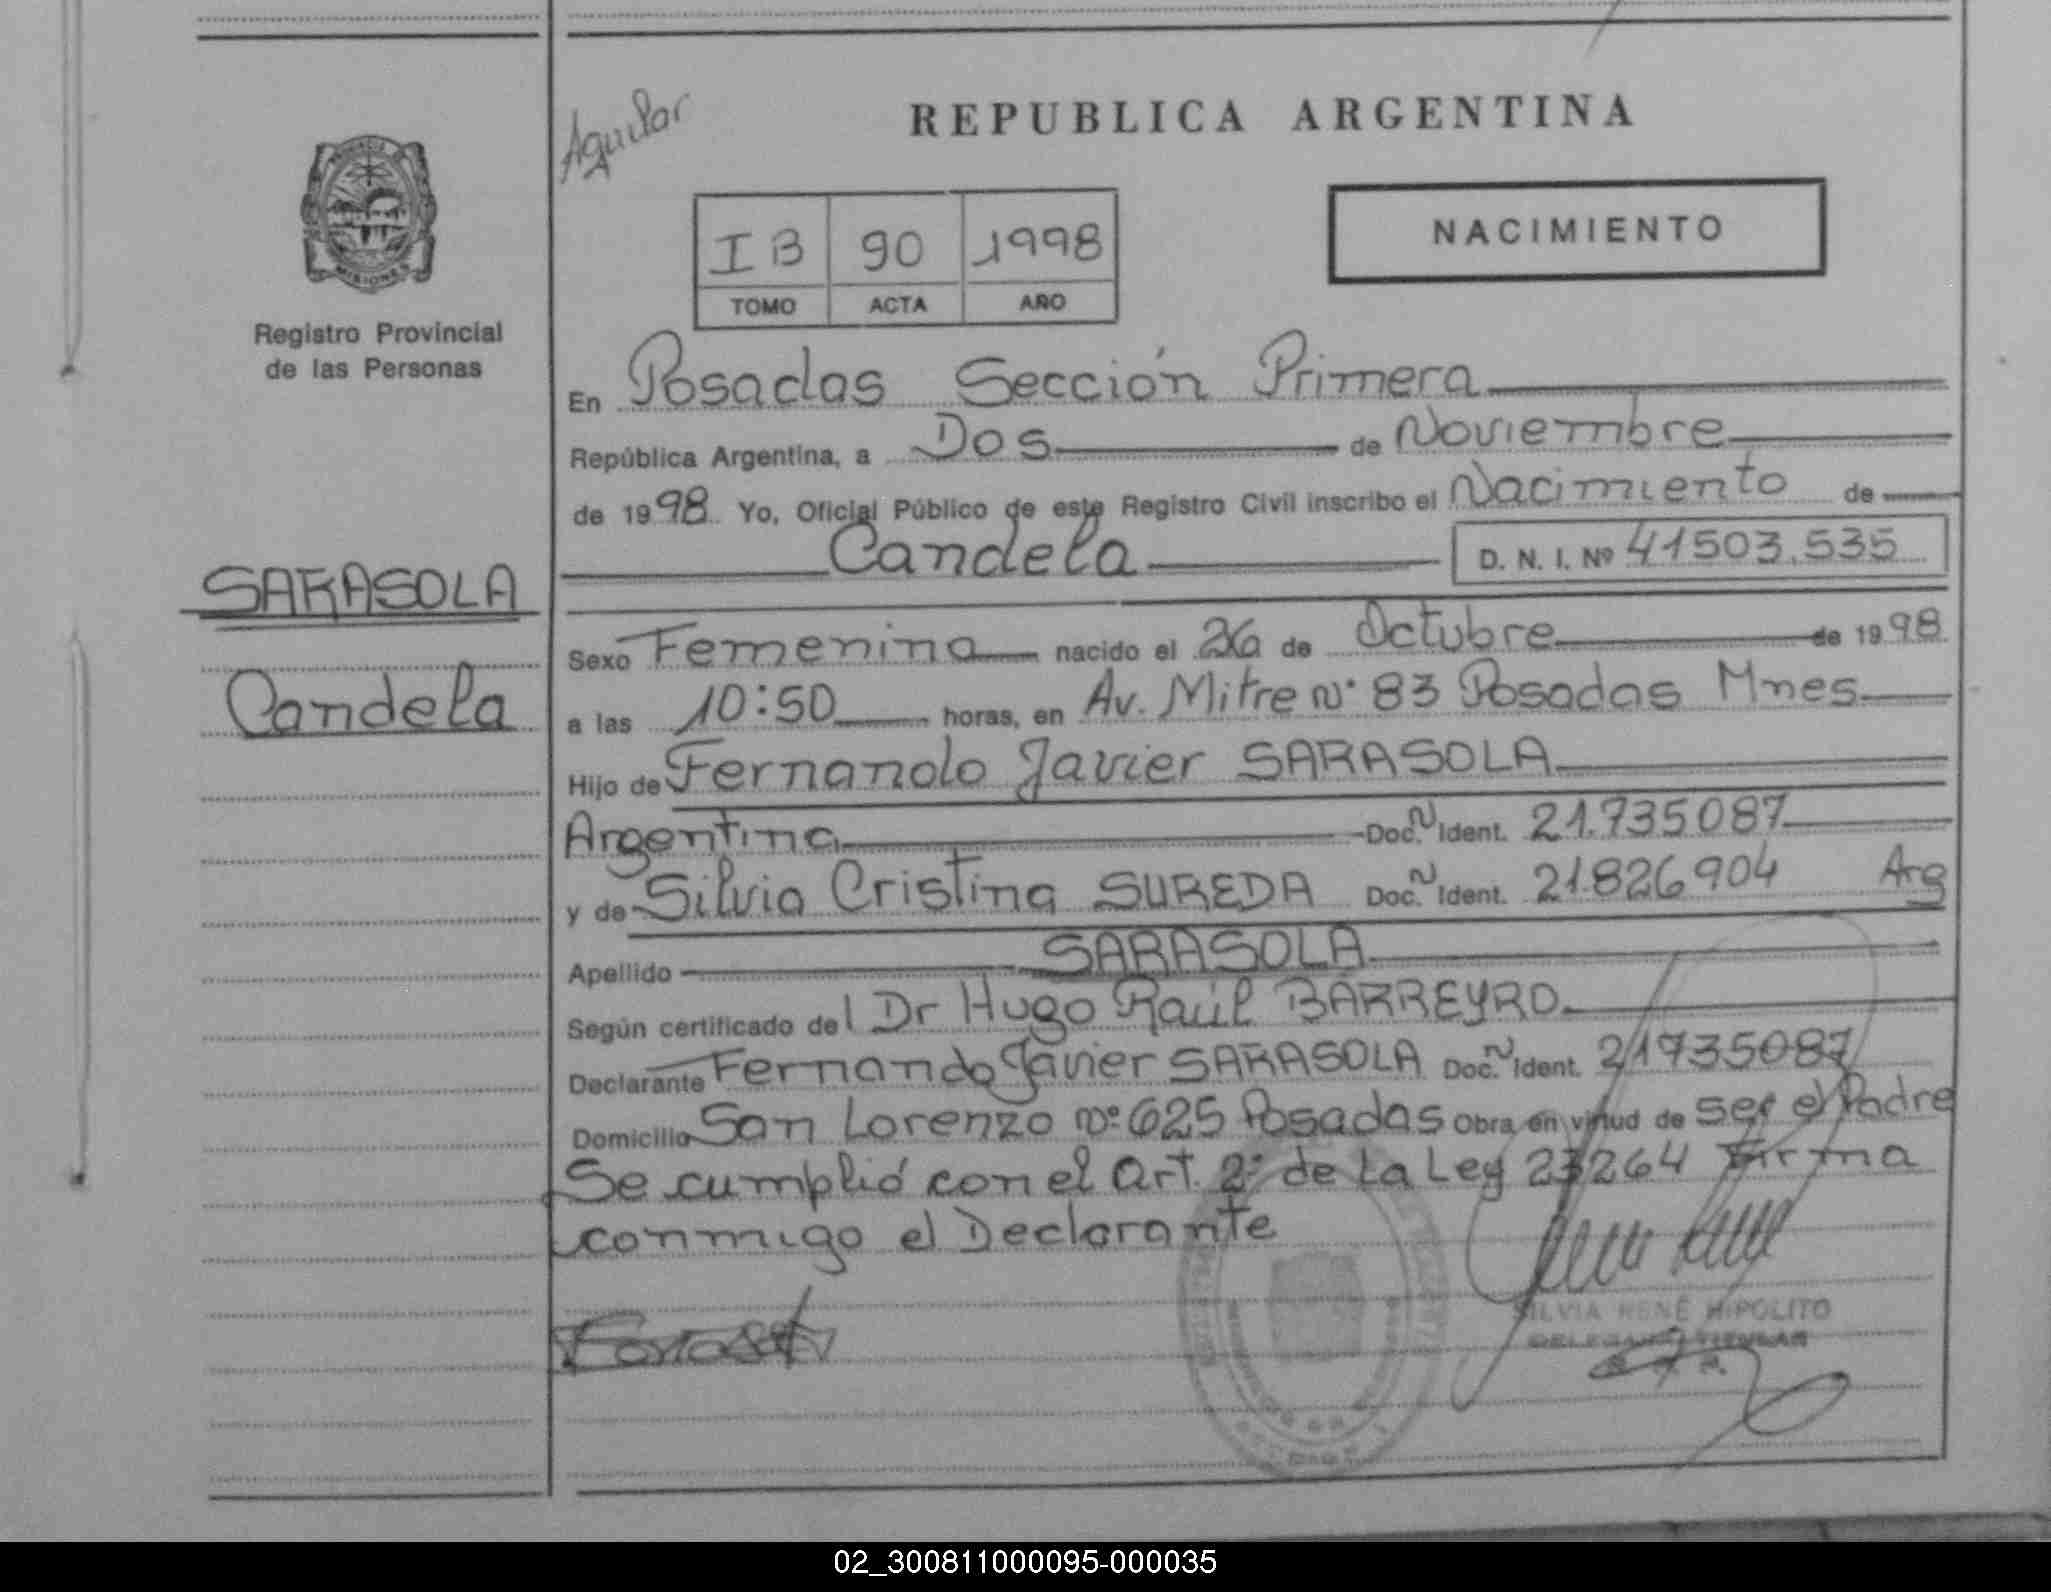 Aguilar
REPUBLICA ARGENTINA
PROVINCIA DE
MISIONES
Registro Provincial
de las Personas
IB 90 1998
TOMO ACTA AÑO
NACIMIENTO
En Posadas Sección Primera
República Argentina, a Dos de Noviembre
de 1998. Yo, Oficial Público de este Registro Civil inscribo el Nacimiento de
Candela D. N. I. Nº 41503.535
SARASOLA
Candela
Sexo Femenina nacido el 26 de Octubre de 1998
a las 10:50 horas, en Av. Mitre Nº 83 Posadas Mnes
Hijo de Fernando Javier SARASOLA
Argentina Doc. N Ident. 21.735087
y de Silvia Cristina SUREDA Doc. N Ident. 21.826904 Arg
Apellido SARASOLA
Según certificado del Dr Hugo Raúl BARREYRO
Declarante Fernando Javier SARASOLA Doc. N Ident. 21735087
Domicilio San Lorenzo Nº 625 Posadas Obra en virtud de ser el Padre
Se cumplió con el Art. 2º de La Ley 23264 Firma
conmigo el Declarante
SILVIA RENÉ HIPOLITO
DELEGADA TITULAR
02_300811000095-000035